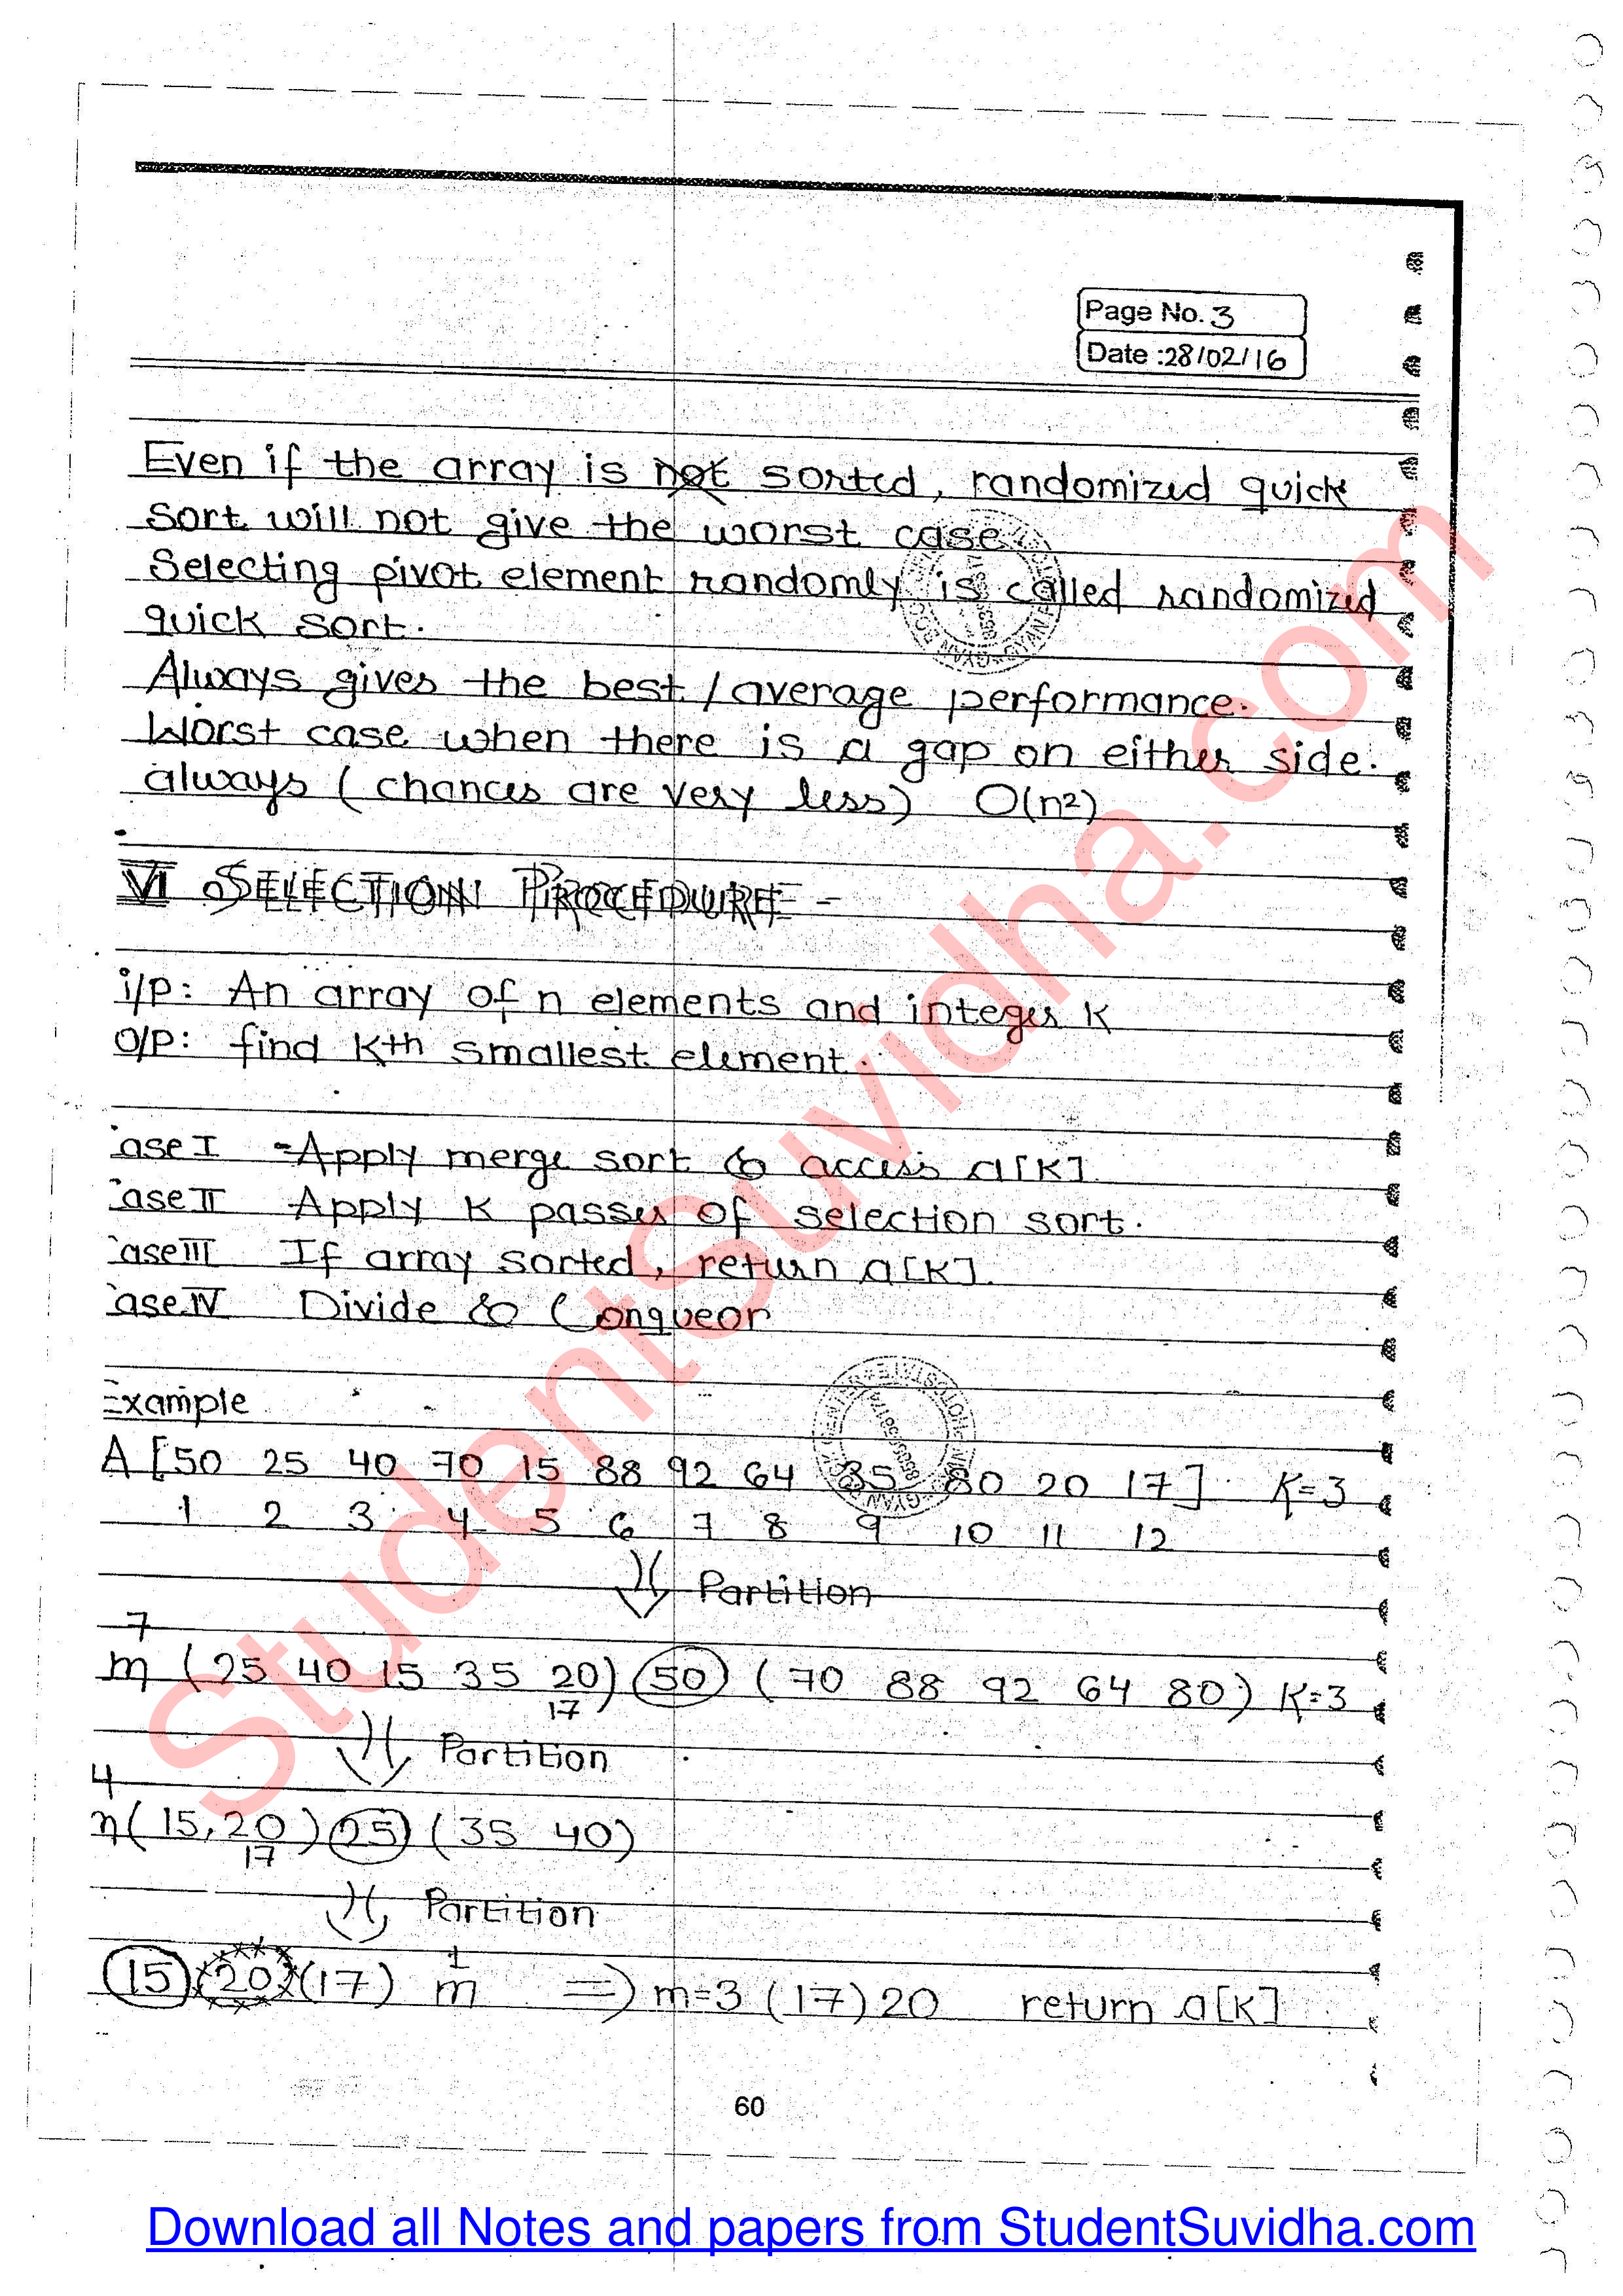 Page No. 3
Date :28/02/16
Even if the array is not sorted, randomized quick
sort will not give the worst case.
Selecting pivot element randomly is called randomized
quick sort.
Always gives the best / average performance.
Worst case when there is a gap on either side.
always ( chances are very less) O(n²)
VI SELECTION PROCEDURE -
i/p: An array of n elements and integer K
o/p: find Kth smallest element.
ase I - Apply merge sort & access a[K]
ase II Apply K passes of selection sort.
ase III If array sorted, return a[K].
ase IV Divide & Conqueor
Example
A [50 25 40 70 15 88 92 64 35 80 20 17] K=3
1 2 3 4 5 6 7 8 9 10 11 12
Partition
7
m (25 40 15 35 20) (50) (70 88 92 64 80) K=3
17
Partition
4
m (15, 20) (25) (35 40)
17
Partition
1
(15) (20) (17) m => m=3 (17) 20 return a[K]
60
Download all Notes and papers from StudentSuvidha.com
StudentSuvidha.com